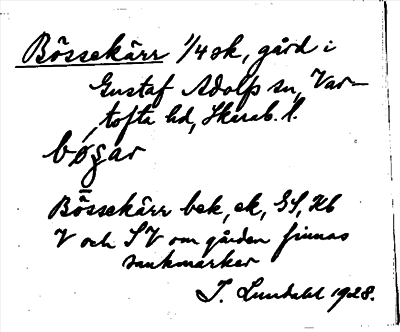 Bössekärr 1/4 sk, gård i
Gustaf Adolfs sn, Var-
tofta hd, Skarab. l.
bø̀ʒar
=
Bössekärr bek, ek, GS, Hb
V och SV om gården finnas
sankmarker
I. Lundahl 1928.